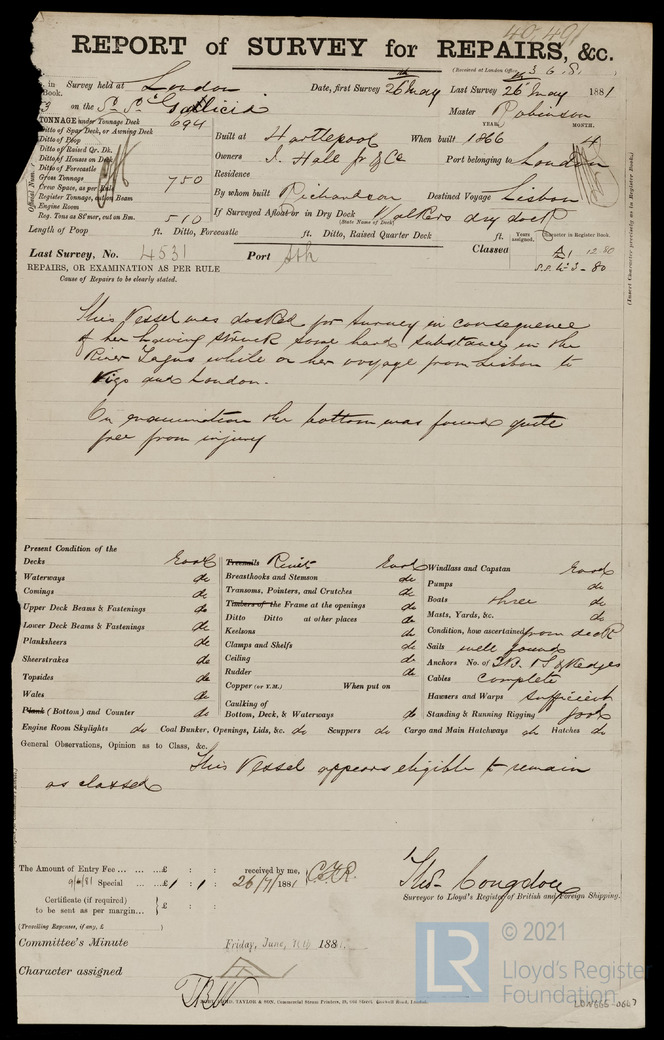 40,491
REPORT of SURVEY for REPAIRS, &c.
(Received at London Office 3 6 81)
in Book. Survey held at London Date, first Survey 26th May Last Survey 26th May 1881
on the S.S. "Gallicia Master Robinson
TONNAGE under Tonnage Deck 694
Ditto of Spar Deck, or Awning Deck
Ditto of Poop
Ditto of Raised Qr. Dk.
Ditto of Houses on Deck
Ditto of Forecastle
Gross Tonnage 750
Crew Space, as per Rule
Register Tonnage, cut on Beam
Engine Room
Reg. Tons as St'mer, cut on Bm. 510
YEAR. MONTH.
Built at Hartlepool When built 1866 4
Owners J. Hall Jr & Co Port belonging to London
Residence
By whom built Richardson Destined Voyage Lisbon
If Surveyed Afloat or in Dry Dock Walkers dry dock
(State Name of Dock)
Length of Poop ft. Ditto, Forecastle ft. Ditto, Raised Quarter Deck ft.
Years assigned. Character in Register Book.
Last Survey, No. 4531 Port Sth Classed A1 12.80
S.S. No 3 - 80
REPAIRS, OR EXAMINATION AS PER RULE
Cause of Repairs to be clearly stated.
(Insert Character precisely as in Register Book)
This Vessel was docked for survey in consequence
of her having struck some hard substance in the
River Tagus while on her voyage from Lisbon to
Vigo and London.
On examination the bottom was found quite
free from injury
Present Condition of the
Decks Good
Waterways do
Comings do
Upper Deck Beams & Fastenings do
Lower Deck Beams & Fastenings do
Planksheers do
Sheerstrakes do
Topsides do
Wales do
Plank (Bottom) and Counter do
Treenails Rivets Good
Breasthooks and Stemson do
Transoms, Pointers, and Crutches do
Timbers of the Frame at the openings do
Ditto Ditto at other places do
Keelsons do
Clamps and Shelfs do
Ceiling do
Rudder do
Copper (or Y.M.) When put on
Caulking of
Bottom, Deck, & Waterways do
Windlass and Capstan Good
Pumps do
Boats three do
Masts, Yards, &c. do
Condition, how ascertained from deck
Sails well found
Anchors No. of 3B. 1S & 2Kedges
Cables complete
Hawsers and Warps sufficient
Standing & Running Rigging good
Engine Room Skylights do Coal Bunker, Openings, Lids, &c. do Scuppers do Cargo and Main Hatchways do Hatches do
General Observations, Opinion as to Class, &c.
This Vessel appears eligible to remain
as classed
The Amount of Entry Fee ... ... ... £ : : received by me,
9/6/81 Special ... ... £1 : 1 : 26/7/1881 C.F.R.
Certificate (if required)
to be sent as per margin... £ : :
(Travelling Expenses, if any, £ )
Thos. Congdon
Surveyor to Lloyd's Register of British and Foreign Shipping.
Committee's Minute Friday, June, 10th 1881.
Character assigned
TRW
TAYLOR & SON, Commercial Steam Printers, 19, Old Street, Goswell Road, London.
LR
© 2021
Lloyd's Register
Foundation
LDN665-0067